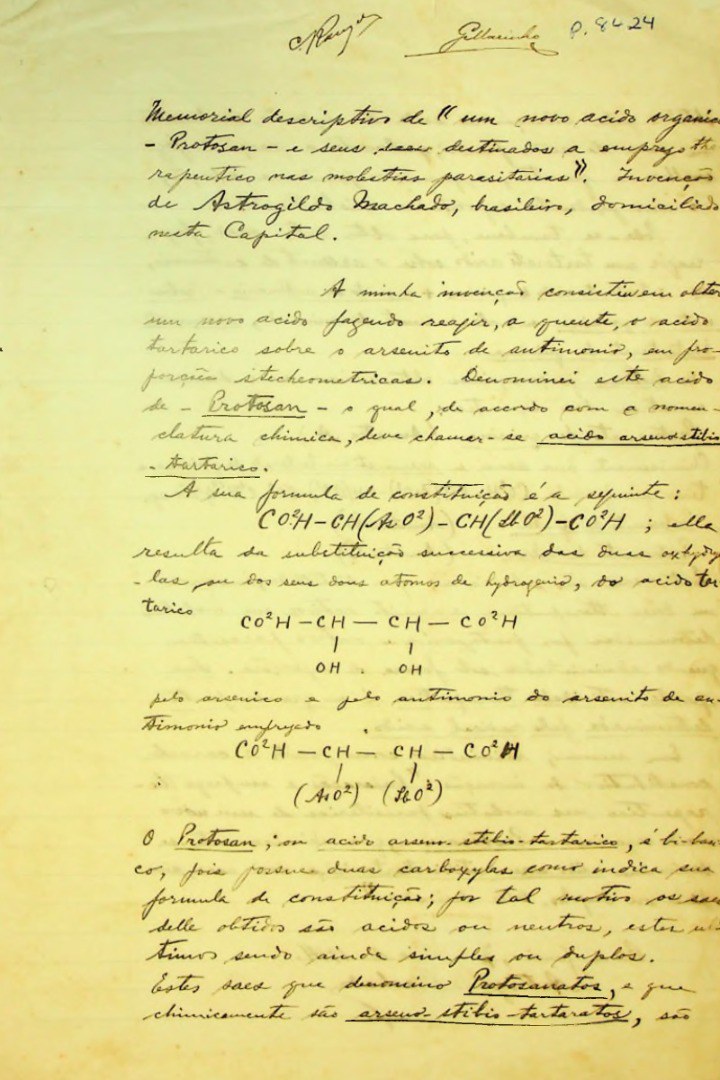 P. 8424
Memorial descriptivo de "um novo acido organic
- Protosan - e seus saes destinados a emprego the
rapeutico nas molestias parasitarias". Invenção
de Astrogildo Machado, brasileiro, domiciliado
nesta Capital.
A minha invenção consistiu em obter
um novo acido fazendo reagir, a quente, o acido
tartarico sobre o arsenito de antimonio, em pro-
porções stecheometricas. Denominei este acido
de - Protosan - o qual, de accordo com a nomen-
clatura chimica, deve chamar-se acido arseno-stibio
-tartarico.
A sua formula de constituição é a seguinte:
CO²H-CH(AsO²)-CH(SbO²)-CO²H ; ella
resulta da substituição successiva das duas oxhydry
-las, ou dos seus dous atomos de hydrogenio, do acido tar
tarico
CO²H - CH - CH - CO²H
OH . OH
pelo arsenico e pelo antimonio do arsenito de an-
timonio empregado
CO²H - CH - CH - CO²H
(AsO²) (SbO²)
O Protosan, ou acido arseno-stibio-tartarico, é bi-basi
co, pois possue duas carboxylas como indica sua
formula de constituição; por tal motivo os saes
delle obtidos são acidos ou neutros, estes ul-
timos sendo ainda simples ou duplos.
Estes saes que denomino Protosanatos, e que
chimicamente são arseno-stibio-tartaratos, são